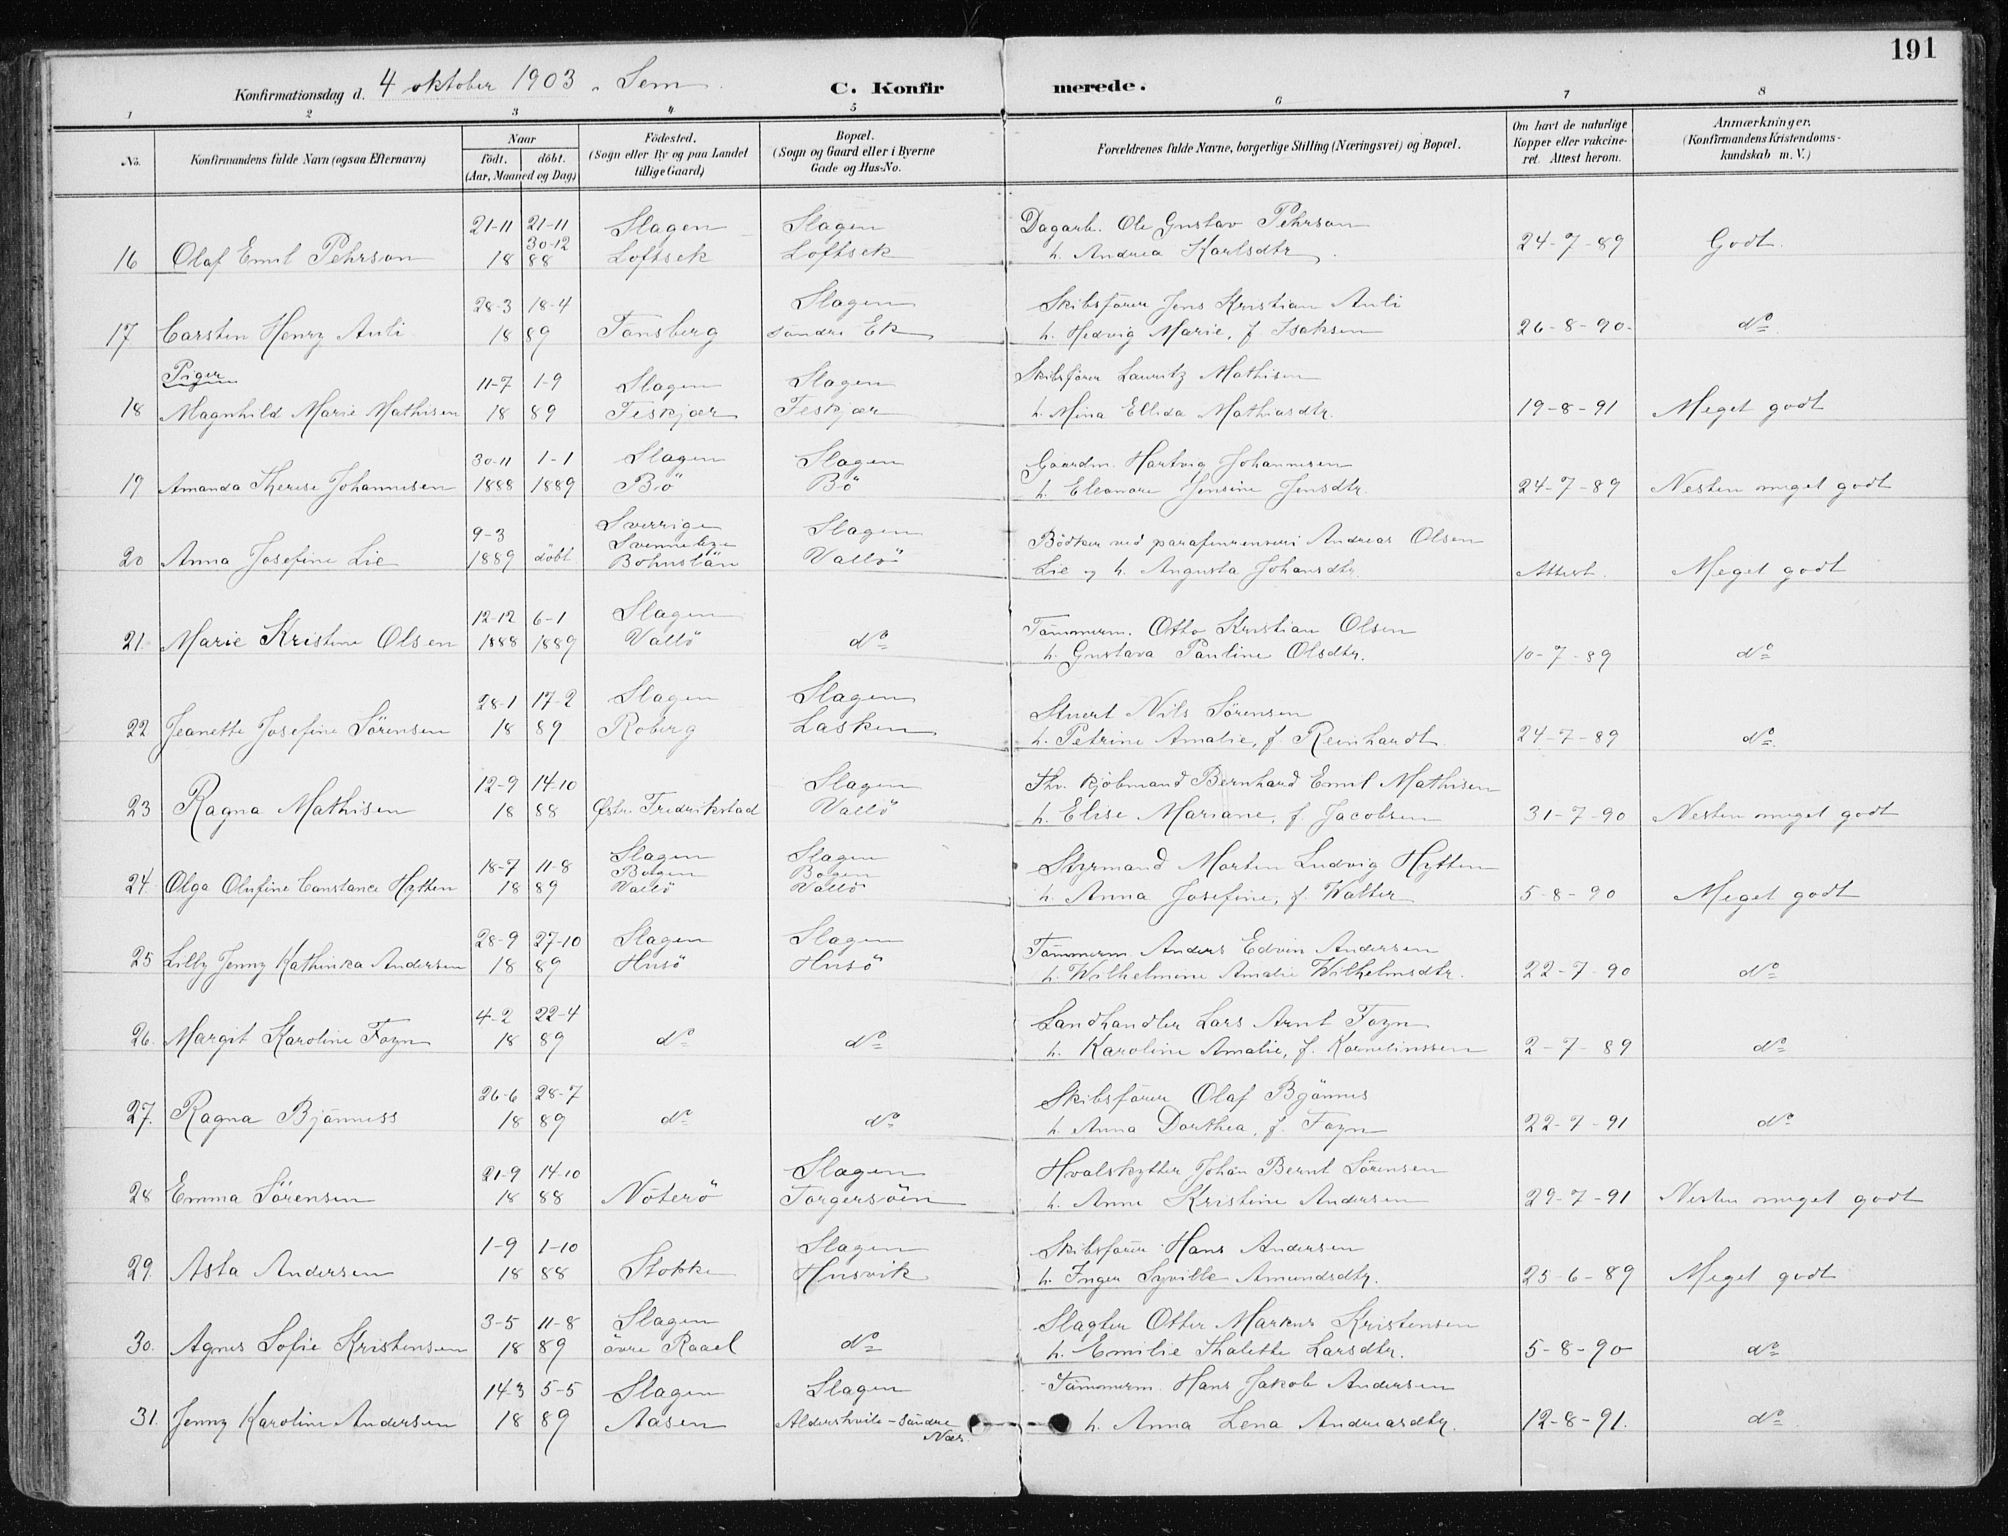 191
Konfirmationsdag d. 4 oktober 1903. Sem.
C. Konfirmerede.
1 2 3 4 5 6 7 8
No. | Konfirmandens fulde Navn (ogsaa Efternavn) | Naar Födt. döbt. (Aar, Maaned og Dag) | Födested. (Sogn eller By og paa Landet tillige Gaard) | Bopæl. (Sogn og Gaard eller i Byerne Gade og Hus-No. | Forældrenes fulde Navne, borgerlige Stilling (Næringsvei) og Bopæl. | Om havt de naturlige Kopper eller vakcineret. Attest herom. | Anmærkninger. (Konfirmandens Kristendomskundskab m. V.)
21-11 21-11 Slagen Slagen Dagarb. Ole Gustav Pehrson
30-12
16 Olaf Emil Pehrson 18 88 Loftsek Loftsek h. Andrea Karlsdtr. 24-7-89 Godt.
28-3 18-4 Slagen Skibsfører Jens Kristian Auli
17 Carsten Henry Auli 18 89 Tønsberg søndre Ek h. Hedvig Marie, f. Isaksen 26-8-90. do
Piger
11-7 1-9 Slagen Slagen Skibsfører Lauritz Mathisen
18 Magnhild Marie Mathisen 18 89 Feskjær Feskjær h. Mina Ellida Mathiasdtr. 19-8-91 Meget godt
30-11 1-1 Slagen Slagen Gaardm. Hartvig Johannesen
19 Amanda Therese Johannesen 1888 1889 Bö Bö h. Eleonore Jensine Jensdtr. 24-7-89 Nesten meget godt
9-3 Sverrige Svenneby Slagen Bödker ved parafinrenseri Andreas Olsen
20 Anna Josefine Lie 1889 döbt Bohuslän Vallö Lie og h. Augusta Johansdtr. Attest. Meget godt
12-12 6-1 Slagen Tömmerm. Otto Kristian Olsen
21. Marie Kristine Olsen 1888 1889 Vallö do h. Gustava Pauline Olsdtr. 10-7-89 do
28-1 17-2 Slagen Slagen Stuert Nils Sörensen
22 Jeanette Josefine Sörensen 18 89 Roberg Lasken h. Petrine Amalie, f. Reinhardt 24-7-89 do
12-9 14-10 Slagen Fhv. kjöbmand Bernhard Emil Mathisen
23 Ragna Mathisen 18 88 Østr. Fredrikstad Vallö h. Elise Mariane, f. Jacobsen 31-7-90 Nesten meget godt
18-7 11-8 Slagen Bogen Slagen Bogen Styrmand Morten Ludvig Hytten
24. Olga Olufine Constance Hytten 18 89 Vallö Vallö h. Anna Josefine, f. Walter 5-8-90 Meget godt
28-9 27-10 Slagen Slagen Tömmerm. Anders Edvin Andersen
25 Lilly Jenny Kathinka Andersen 18 89 Husö Husö h. Wilhelmine Amalie Wilhelmsdtr. 22-7-90 do
4-2 22-4 Landhandler Lars Arnt Foyn
26. Margit Karoline Foyn 18 89 do do h. Karoline Amalie, f. Korneliussen 2-7-89 do
26-6 28-7 Skibsfører Olaf Bjönnes
27. Ragna Bjönness 18 89 do do h. Anna Dorthea, f. Foyn 22-7-91 do
21-9 14-10 Slagen Hvalskytter Johan Bernt Sörensen
28 Emma Sörensen 18 88 Nöterö Torgersöen h. Anne Kristine Andersen 29-7-91 Nesten meget godt
1-9 1-10 Slagen Skibsfører Hans Andersen
29. Asta Andersen 18 88 Stokke Husvik h. Inger Syville Amundsdtr. 25-6-89 Meget godt
3-5 11-8 Slagen Slagter Otter Markus Kristensen
30. Agnes Sofie Kristensen 18 89 övre Raael do h. Emilie Thalette Larsdtr. 5-8-90 do
14-3 5-5 Slagen Slagen Tömmerm. Hans Jakob Andersen
31. Jenny Karoline Andersen 18 89 Aasen Aldershvile-söndre Næs. h. Anna Lena Andreasdtr. 12-8-91. do